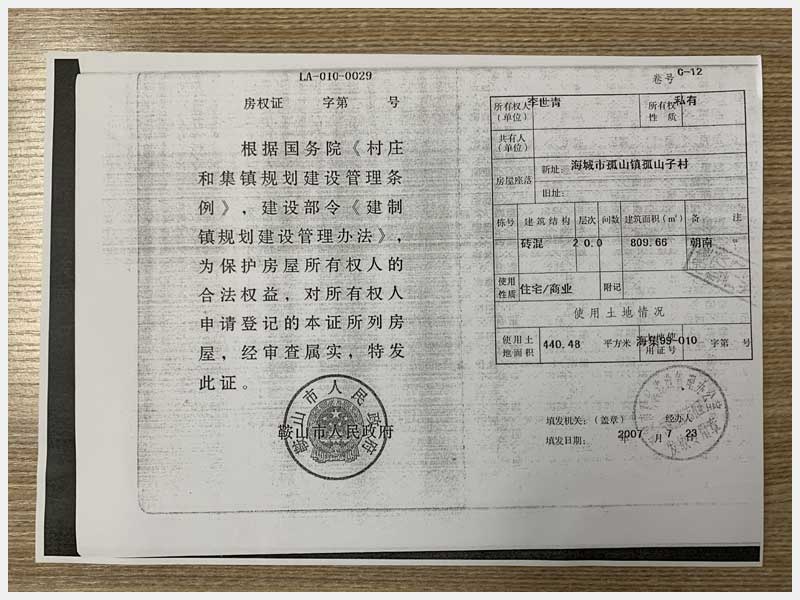 LA-010-0029
房权证 字第 号
根据国务院《村庄
和集镇规划建设管理条
例》，建设部令《建制
镇规划建设管理办法》，
为保护房屋所有权人的
合法权益，对所有权人
申请登记的本证所列房
屋，经审查属实，特发
此证。
鞍山市人民政府
鞍山市人民政府
卷号 G-12
所有权人（单位） 李世青 所有权性质 私有
共有人（单位）
房屋座落 新址： 海城市孤山镇孤山子村
旧址：
栋号 建筑结构 层次 间数 建筑面积（㎡） 备 注
砖混 2 0.0 809.66 朝南
使用性质 住宅/商业 附记
使用土地情况
使用土地面积 440.48 平方米 土地使用证号 海集99-010 字第 号
填发机关：（盖章） 经办人
填发日期： 2007 年 7 月 23 日